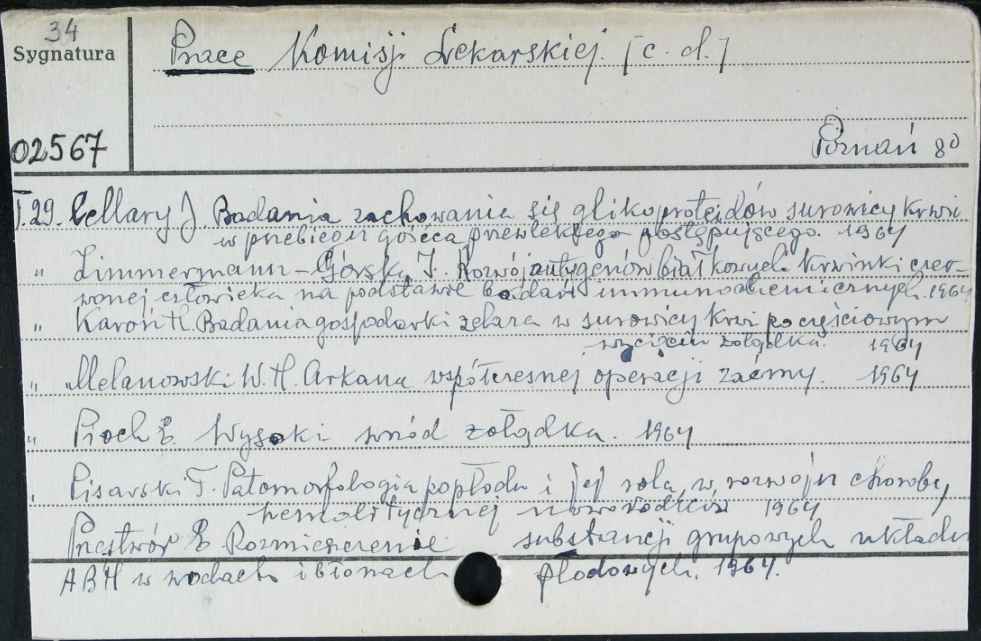 34
Sygnatura
02567
Prace Komisji Lekarskiej. [c. d.]
Poznań 8°
T.29. Cellary J. Badania zachowania się glikoproteidów surowicy krwi
w przebiegu gośćca przewlekłego postępującego. 1964
" Zimmermann-Górska I. Rozwój antygenów białkowych krwinki czer-
wonej człowieka na podstawie badań immunochemicznych. 1964
" Karoń H. Badania gospodarki żelaza w surowicy krwi po częściowym
wycięciu żołądka. 1964
" Melanowski W.H. Arkana współczesnej operacji zaćmy. 1964
" Pioch E. Wysoki wrzód żołądka. 1964
" Pisarski T. Patomorfologia popłodu i jej rola w rozwoju choroby
hemolitycznej noworodków 1964
Przestwór E. Rozmieszczenie substancji grupowych układu
ABH w wodach i błonach płodowych. 1964.